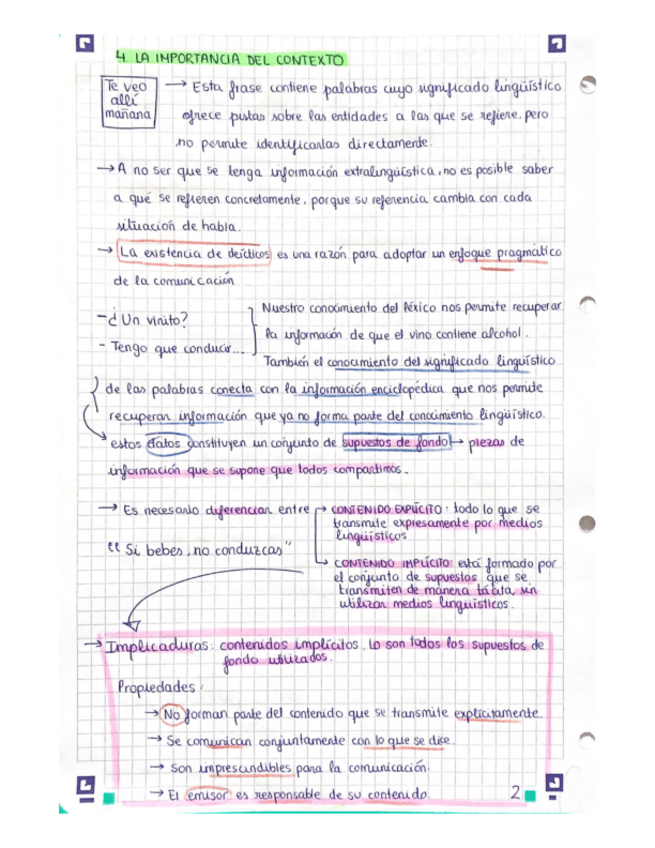 4. LA IMPORTANCIA DEL CONTEXTO
Te veo
allí
mañana
→ Esta frase contiene palabras cuyo significado lingüístico
ofrece pistas sobre las entidades a las que se refiere, pero
no permite identificarlas directamente.
→ A no ser que se tenga información extralingüística, no es posible saber
a qué se refieren concretamente, porque su referencia cambia con cada
situación de habla.
→ La existencia de deícticos es una razón para adoptar un enfoque pragmático
de la comunicación
- ¿Un vinito?
- Tengo que conducir...
Nuestro conocimiento del léxico nos permite recuperar
la información de que el vino contiene alcohol.
También el conocimiento del significado lingüístico
de las palabras conecta con la información enciclopédica que nos permite
recuperar información que ya no forma parte del conocimiento lingüístico.
estos datos constituyen un conjunto de supuestos de fondo → piezas de
información que se supone que todos compartimos.
→ Es necesario diferenciar entre
→ CONTENIDO EXPLÍCITO: todo lo que se
transmite expresamente por medios
lingüísticos
"Si bebes, no conduzcas"
↳ CONTENIDO IMPLÍCITO: está formado por
el conjunto de supuestos que se
transmiten de manera tácita, sin
utilizar medios lingüísticos.
→ Implicaduras: contenidos implícitos. Lo son todos los supuestos de
fondo utilizados.
Propiedades:
→ No forman parte del contenido que se transmite explícitamente.
→ Se comunican conjuntamente con lo que se dice.
→ Son imprescindibles para la comunicación.
→ El emisor es responsable de su contenido
2